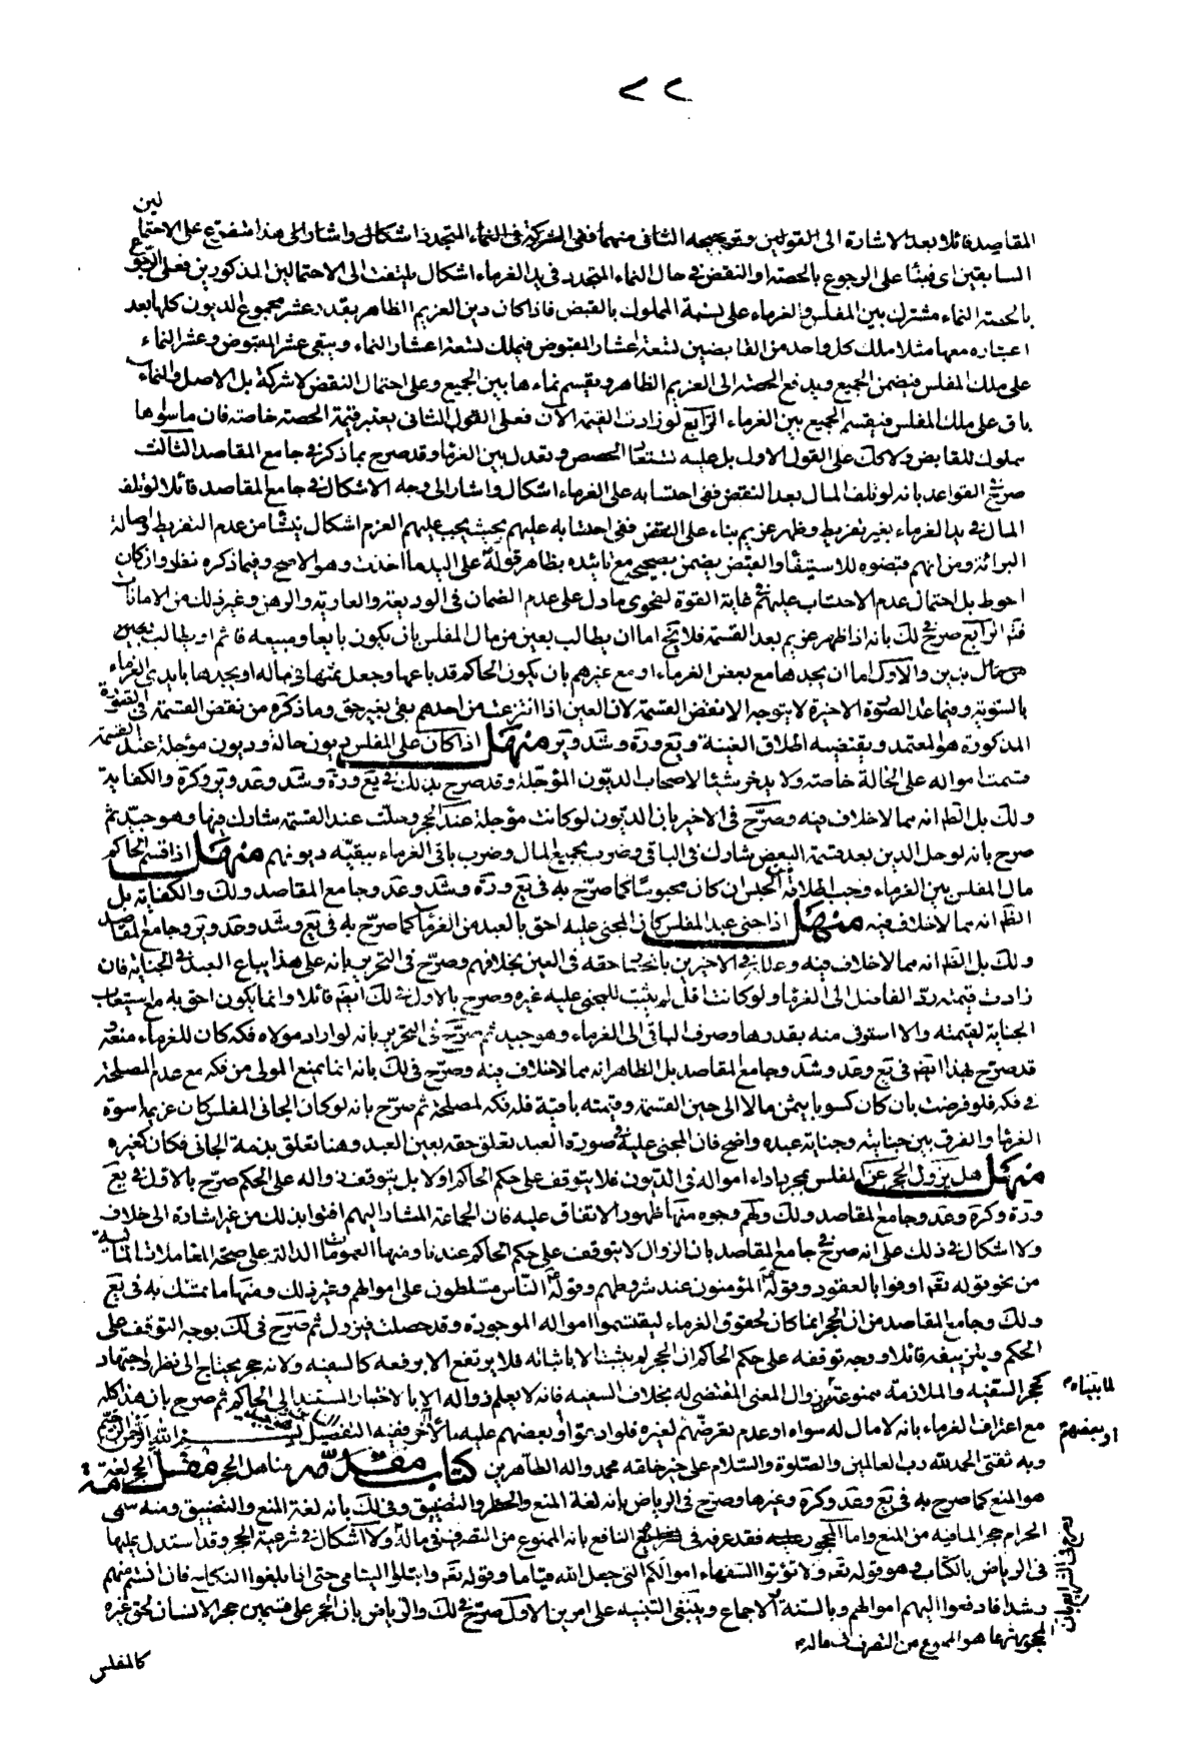 ٢٢
لين
المقاصد قائلا بعد الاشارة الى القولين وترجيحه الثانى منهما ففى الشركة فى النماء المتجدد اشكال واشار الى هذا متفرع على الاحتما
السابقين اى فبنا على الرجوع بالحصة او النقض فى حال النماء المتجدد فى يد الغرماء اشكال يلتفت الى الاحتمالين المذكورين فعلى الرجوع
بالحصة النماء مشترك بين المفلس والغرماء على نسبة المملوك بالقبض فاذا كان دين الغريم الظاهر بقدر عشر مجموع الديون كلها بعد
اعتباره معها مثلا ملك كل واحد من القابضين تسعة اعشار المقبوض فيملك تسعة اعشار النماء ويبقى عشر المقبوض وعشر النماء
على ملك المفلس فيضمن الجميع ويدفع الحصة الى الغريم الظاهر ويقسم نماءها بين الجميع وعلى احتمال النقض لا شركة بل الاصل والنماء
باق على ملك المفلس فيقسم الجميع بين الغرماء الرابع لو زادت القيمة الآن فعلى القول الثانى يعتبر قيمة الحصة خاصة فان ما سواها
مملوك للقابض ولا كك على القول الاول بل عليه تستعاد الحصص وتعدل بين الغرماء وقد صرح بما ذكر فى جامع المقاصد الثالث
صرح فى القواعد بانه لو تلف المال بعد النقض ففى احتسابه على الغرماء اشكال واشار الى وجه الاشكال فى جامع المقاصد قائلا لو تلف
المال فى يد الغرماء بغير تفريط وظهر غريم بناء على النقض ففى احتسابه عليهم بحيث يجب عليهم الغرم اشكال ينشأ من عدم التفريط واصالة
البرائة ومن انهم قبضوه للاستيفاء والقبض يضمن بصحيحه مع تائيده بظاهر قوله على اليد ما اخذت وهو الاصح وفيما ذكره نظر وان كان
احوط بل احتمال عدم الاحتساب عليهم فى غاية القوة لفحوى ما دل على عدم الضمان فى الوديعة والعارية والرهن وغير ذلك من الامانات
الرابع صرح فى لك بانه اذا ظهر غريم بعد القسمة فلا يخ اما ان يطالب بعين من مال المفلس بان يكون بايعا ومبيعه قائم او يطالب بعين
بدين والاول اما ان يجدها مع بعض الغرماء او مع غيرهم بان يكون الحاكم قد باعها وجعل ثمنها فى ماله او يجدها بايدى الغرماء
بالسوية وفيما عدا الصورة الاخيرة لا يتوجه الا نقض القسمة لان العين اذا انتزعت من احدهم بقى بغير حق وما ذكره من نقض القسمة فى الصورة
المذكورة هو المعتمد ويقتضيه اطلاق الغنية ويع ورة وشد وير منهل اذا كان على المفلس ديون حالة وديون مؤجلة عند القسمة
قسمت امواله على الحالة خاصة ولا يدخر شيئا لاصحاب الديون المؤجلة وقد صرح بذلك فى يع ورة وشد وعد وير وكرة والكفاية
ولك بل الظ انه مما لا خلاف فيه وصرح فى الاخير بان الديون لو كانت مؤجلة عند الحجر وحلت عند القسمة يشارك فيها وهو جيد ثم
صرح بانه لو حل الدين بعد قسمة البعض شارك فى الباقى وضرب بجميع المال وضرب باقى الغرماء ببقية ديونهم منهل اذا قسم الحاكم
مال المفلس بين الغرماء وجب اطلاقه من الحبس ان كان محبوسا كما صرح به فى يع ورة وشد وعد وجامع المقاصد ولك والكفاية بل
الظ انه مما لا خلاف فيه منهل اذا جنى عبد المفلس كان المجنى عليه احق بالعبد من الغرماء كما صرح به فى يع وشد وعد وير وجامع المقاصد
ولك بل الظ انه مما لا خلاف فيه وعللا فى الاخيرين بانحصار حقه فى العين بخلافهم وصرح فى التحرير بانه على هذا يباع العبد فى الجناية فان
زادت قيمته رد الفاضل الى الغرماء ولو كانت اقل لم يثبت للمجنى عليه غيره وصرح بالاول فى لك ايضا قائلا وانما يكون احق به مع استيعاب
الجناية لقيمته والا استوفى منه بقدرها وصرف الباقى الى الغرماء وهو جيد ثم صرح فى التحرير بانه لو اراد مولاه فكه كان للغرماء منعه و
قد صرح بهذا ايضا فى يع وعد وشد وجامع المقاصد بل الظاهر انه مما لا خلاف فيه وصرح فى لك بانه انما يمنع المولى من فكه مع عدم المصلحة
فى فكه فلو فرضت بان كان كسوبا يثمر مالا الى حين القسمة وقيمته باقية فله فكه لمصلحة ثم صرح بانه لو كان الجانى المفلس كان غريمها اسوة
الغرماء والفرق بين جنايته وجناية عبده واضح فان المجنى عليه فى صورة العبد تعلق حقه بعين العبد وهنا تعلق بذمة الجانى فكان كغيره
منهل هل يزول الحجر عن المفلس بمجرد اداء امواله فى الديون فلا يتوقف على حكم الحاكم او لا بل يتوقف زواله على الحكم صرح بالاول فى يع
ورة وكرة وعد وجامع المقاصد ولك ولهم وجوه منها ظهور الاتفاق عليه فان الجماعة المشار اليهم افتوا بذلك من غير اشارة الى خلاف
ولا اشكال فى ذلك على انه صرح فى جامع المقاصد بان الزوال لا يتوقف على حكم الحاكم عندنا ومنها العمومات الدالة على صحة المعاملات المالية
من نحو قوله تقه اوفوا بالعقود وقوله المؤمنون عند شروطهم وقوله الناس مسلطون على اموالهم وغير ذلك ومنها ما تمسك به فى يع
ولك وجامع المقاصد من ان الحجر انما كان لحقوق الغرماء ليقتسموا امواله الموجودة وقد حصلت فيزول ثم صرح فى لك بوجه التوقف على
الحكم وبتزييفه قائلا ووجه توقفه على حكم الحاكم ان الحجر لم يثبت الا باثباته فلا يرتفع الا برفعه كالسفيه ولانه حجر يحتاج الى نظر واجتهاد
كحجر السفيه والملازمة ممنوعة زوال المعنى المقتضى له بخلاف السفيه فانه لا يعلم زواله الا بالاختبار المستند الى الحاكم ثم صرح بان هذا كله
مع اعتراف الغرماء بانه لا مال له سواه او عدم تعرضهم لغيره فلو ادعوا او بعضهم عليه مالا آخر ففيه التفصيل بسم الله الرحمن الرحيم
وبه ثقتى الحمد لله رب العالمين والصلوة والسلام على خير خلقه محمد واله الطاهرين كتاب مناهل الحجر الحجر لغة
هو المنع كما صرح به فى يع وعد وكرة وغيرها وصرح فى الرياض بانه لغة المنع والحظر والتضييق وفى لك بانه لغة المنع والتضييق ومنه سمى
الحرام حجرا لما فيه من المنع واما المحجور فقد عرفه فى النافع بانه الممنوع من التصرف فى ماله ولا اشكال فى شرعية الحجر وقد استدل عليها
فى الرياض بالكتاب وهو قوله تقه ولا تؤتوا السفهاء اموالكم التى جعل الله قياما وقوله تقه وابتلوا اليتامى حتى اذا بلغوا النكاح فان انستم منهم
رشدا فادفعوا اليهم اموالهم وبالسنة والاجماع وينبغى التنبيه على امرين الاول صرح فى لك والرياض بان الحجر على قسمين حجر الانسان لحق غيره
المحجور شرعا هو الممنوع من التصرف فى ماله
كالمفلس